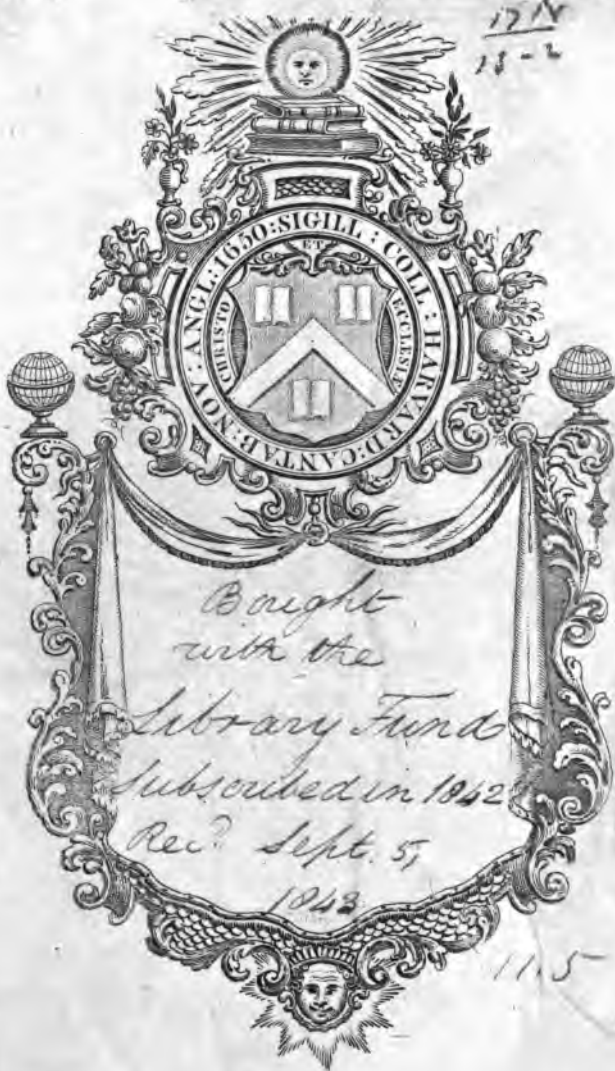 17 N
13-2
SIGILL : COLL : HARVARD : CANTAB : NOV : ANGL : 1650 :
CHRISTO ET ECCLESIÆ
Bought
with the
Library Fund
Subscribed in 1842
Rec.d Sept. 5,
1843